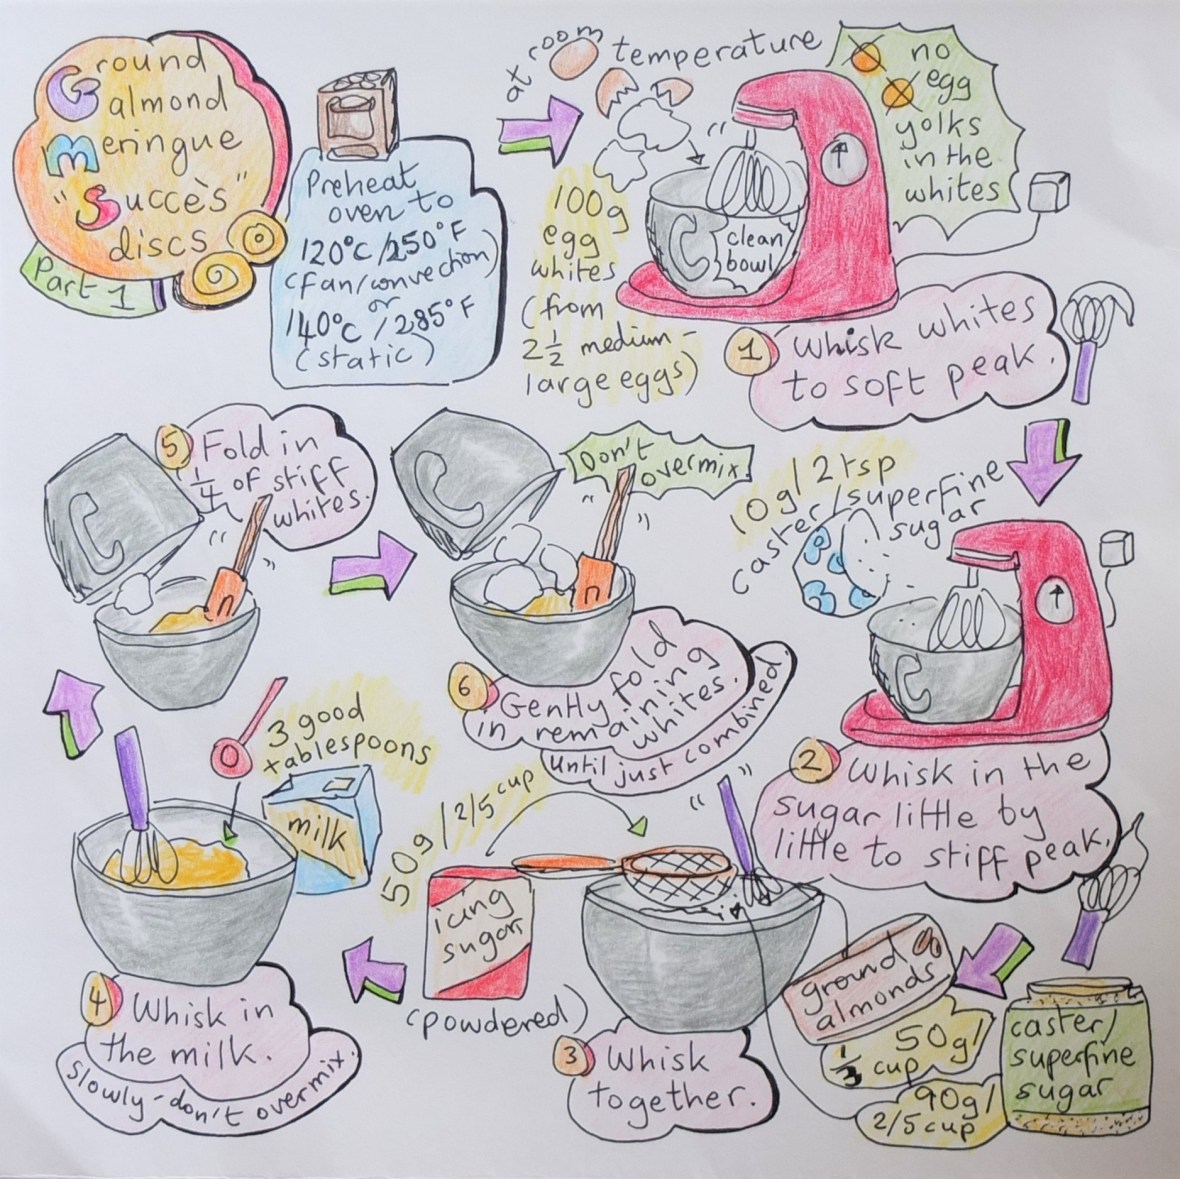 Ground
almond
meringue
"Succès"
discs
Part 1
Preheat
oven to
120°C/250°F
(fan/convection)
or
140°C/285°F
(static)
at room temperature
100g
egg
whites
(from
2 1/2 medium-
large eggs)
clean
bowl
no
egg
yolks
in the
whites
1 Whisk whites
to soft peak.
10g/2tsp
caster/superfine
sugar
2 Whisk in the
sugar little by
little to stiff peak.
caster/
superfine
sugar
90g/
2/5 cup
ground
almonds
50g/
1/3 cup
50g/2/5 cup
icing
sugar
(powdered)
3 Whisk
together.
3 good
tablespoons
milk
4 Whisk in
the milk.
Slowly - don't overmix.
5 Fold in
1/4 of stiff
whites.
Don't
overmix.
6 Gently fold
in remaining
whites.
until just combined.